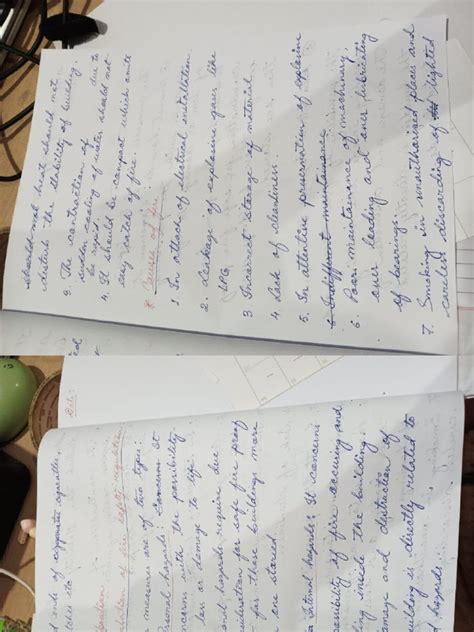 should not heat should not
disturb the stability of building.
3. The contraction of due to
sudden cooling of water should not
be rapid.
4. It should be compact which cante
easy catch of fire.
* Causes of fire
1. In attack of electrical installation.
2. Leakage of explosive gases like
LPG
3. Incorrect storage of material
4. Lack of cleanliness.
5. In attentive preservation of explosive
6. Indifferent maintenance
6. Poor maintenance of machinery,
over loading and over lubricating
of bearings.
7. Smoking in unauthorised place and
careless discarding of lighted
Date:
d ends of cigarette,
tches etc
of fire safety
measures are of two types:
sonal hazards: Concerns It
ncern with the possibility
loss or damage to life.
onal hazards require due
sideration for safe fire proof
for these buildings more
one storied.
Internal hazards: It concerns
ossibility of fire occuring and
ding inside the building.
amage and distruction of
uilding is directly related to
l hazards